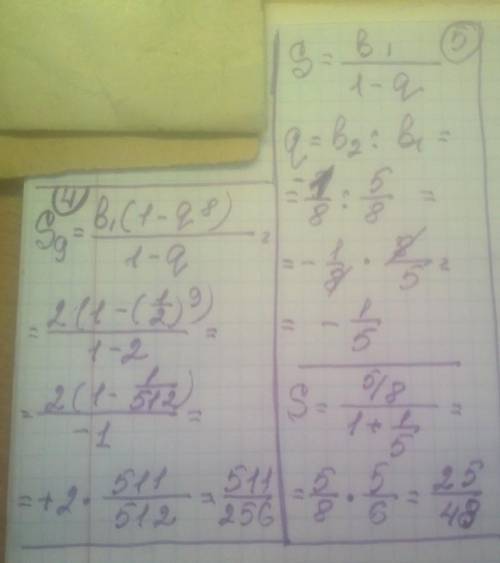 4
S₉ = b₁(1-q⁸) / 1-q =
= 2(1-(1/2)⁹) / 1-2 =
= 2(1-1/512) / -1 =
= +2 · 511/512 = 511/256
5
S = b₁ / 1-q
q = b₂ : b₁ =
= -1/8 : 5/8 =
= -1/8 · 8/5 =
= -1/5
S = 5/8 / 1+1/5 =
= 5/8 · 5/6 = 25/48